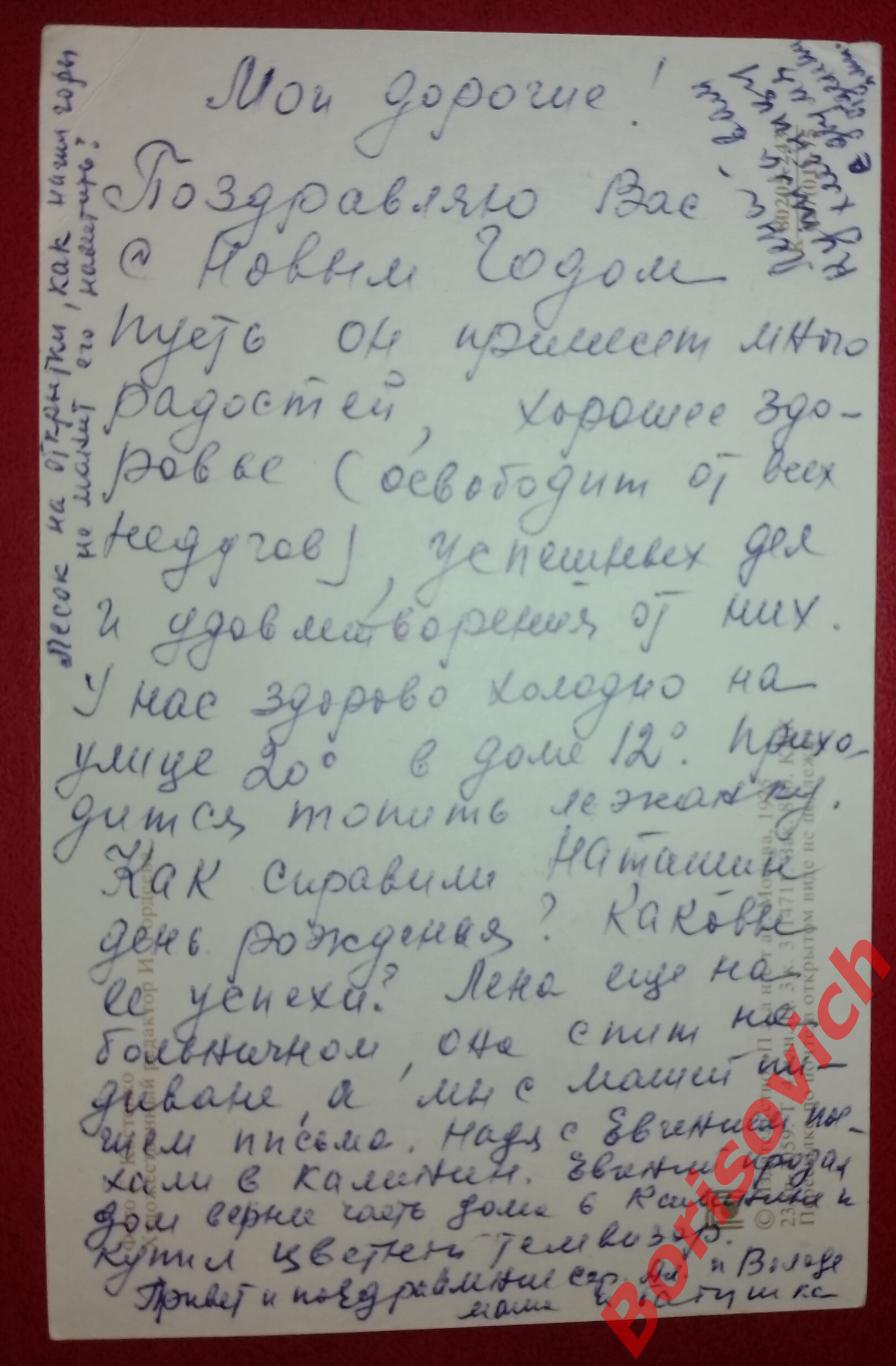 Мои дорогие!
Поздравляю Вас
с Новым Годом
Пусть он принесет много
радостей, хорошее здо-
ровье (освободит от всех
недугов), успешных дел
и удовлетворения от них.
У нас здорово холодно на
улице 20° в доме 12°. Прихо-
дится топить лежанку.
Как справили Наташин
день рождения? Каковы
ее успехи? Лена еще на
больничном, она спит на
диване, а мы с Машей пи-
шем письма. Надя с Евгением пое-
хали в Калинин. Евгений продал
дом верне часть дома в Калинине и
купил цветной телевизор.
Привет и поздравление и Володе
мама и
Лесок на открытки, как наши горы
не манит его навестить?
Borisovich